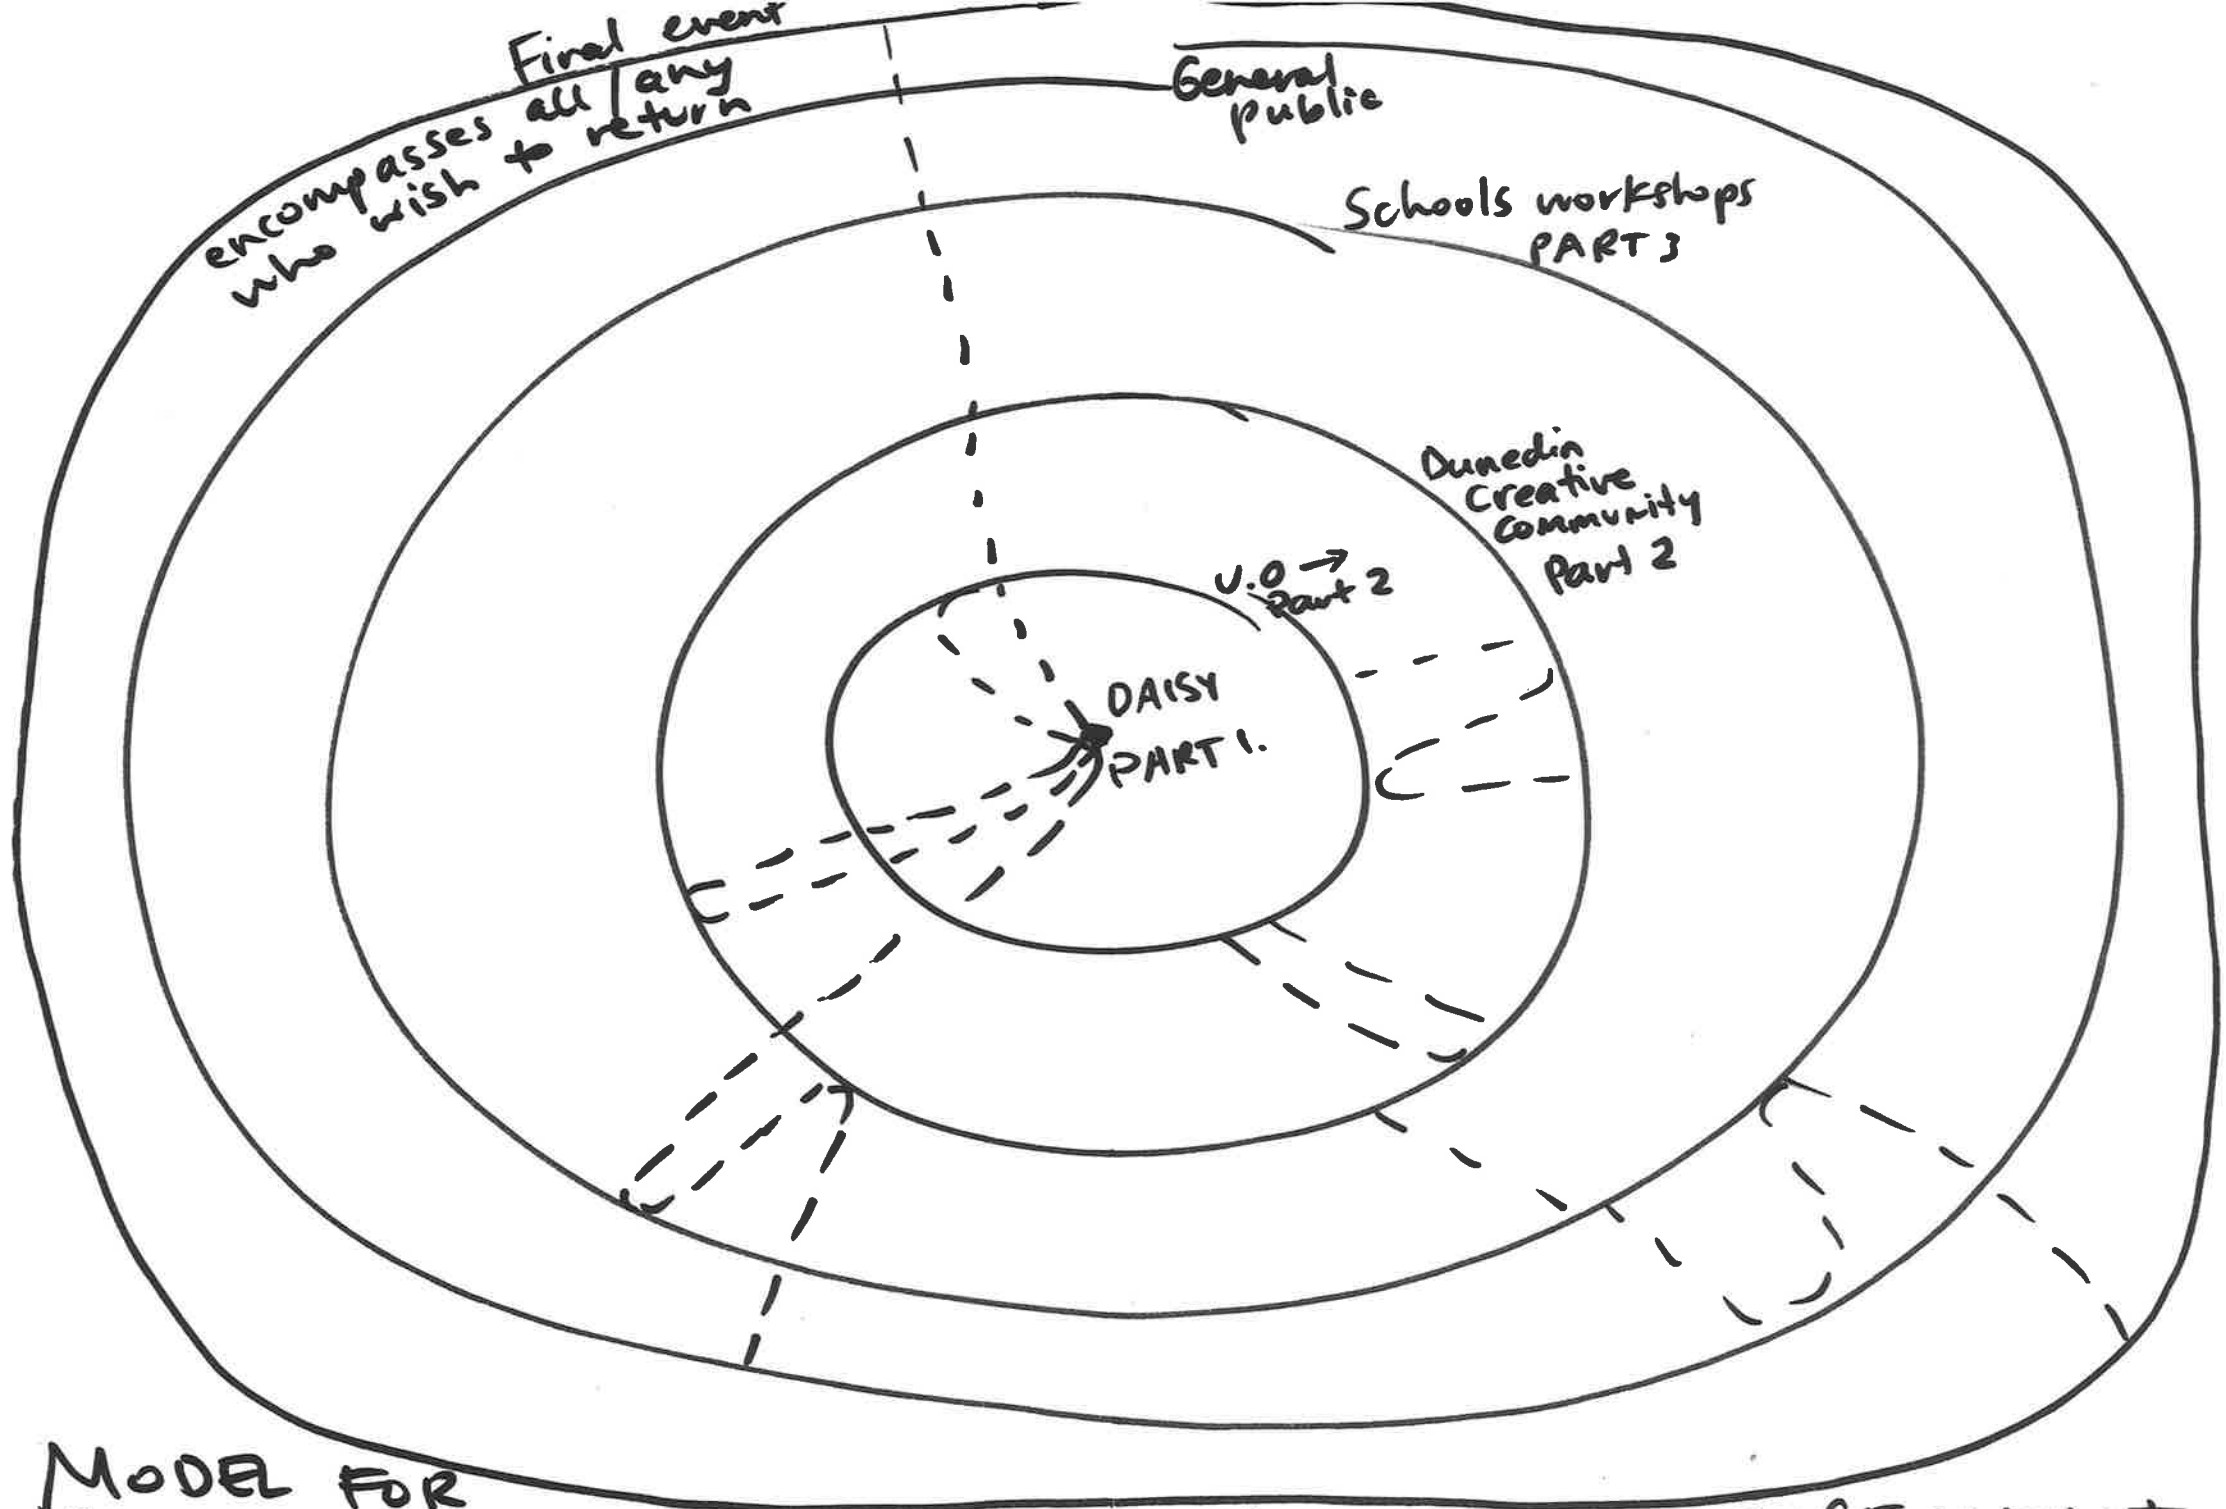 Final event
encompasses all / any
who wish to return
General
public
Schools workshops
PART 3
Dunedin
Creative
community
Part 2
U.O →
Part 2
DAISY
PART 1.
MODEL FOR